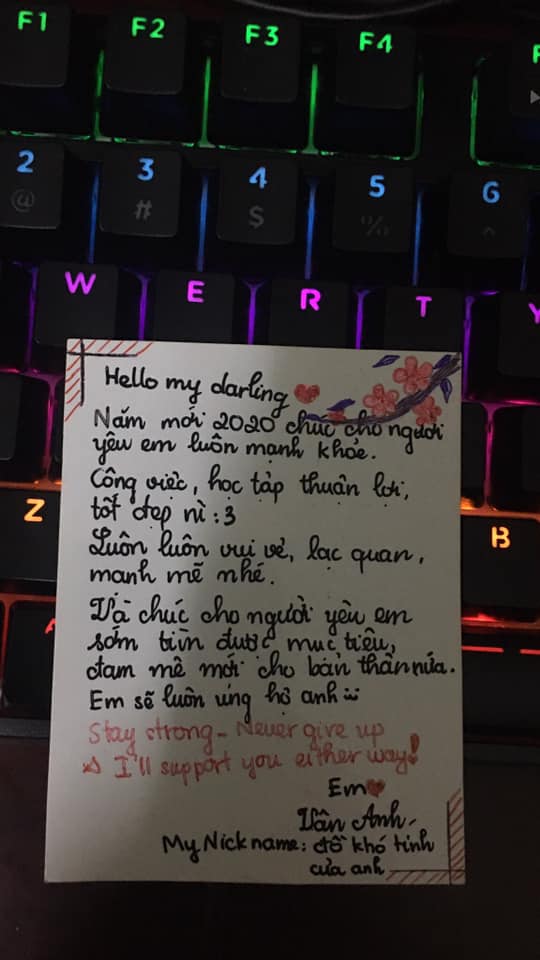 F1 F2 F3 F4
2 3 4 5 6
@ # $ % ^
W E R T Y
Hello my darling
Năm mới 2020 chúc cho người
yêu em luôn mạnh khỏe.
Công việc, học tập thuận lợi,
tốt đẹp nì :3
Z
B
Luôn luôn vui vẻ, lạc quan,
mạnh mẽ nhé.
Và chúc cho người yêu em
sớm tìm được mục tiêu,
đam mê mới cho bản thân nữa.
Em sẽ luôn ủng hộ anh
Stay strong - Never give up
I'll support you either way!
Em
Vân Anh
My Nick name: đồ khó tính
của anh